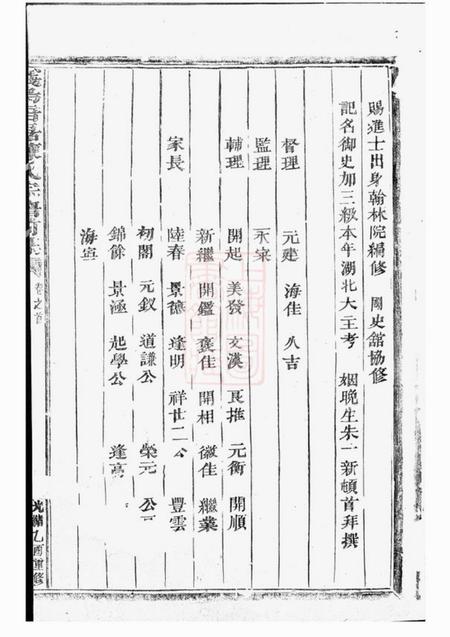 賜進士出身翰林院編修 國史館協修
記名御史加三級本年湖北大主考 姻晚生朱一新頓首拜撰
督理 元建 海佳 久吉
監理
輔理 開起 美發 文漢 良推 元衡 開順
新繼 開鑑 褒佳 開相 徽佳 繼業
家長 陸春 景德 逢明 祥世二公 豐雲
初閣 元釵 道謙公 榮元公
錦餘 景涵 起學公 逢高
海寧
卷之首
光緒乙酉重修